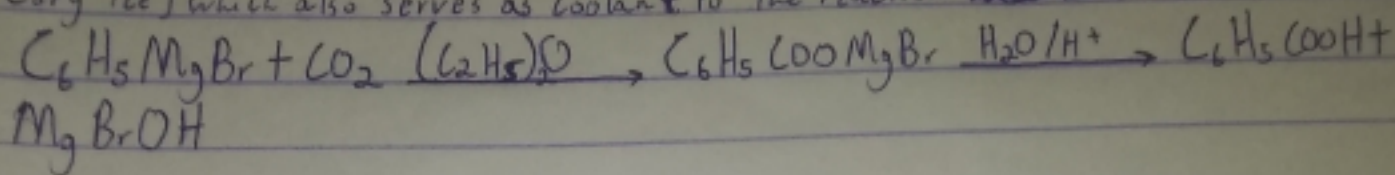 dry ice) which also serves as coolant to the
C₆H₅MgBr + CO₂ (C₂H₅)₂O → C₆H₅COOMgBr H₂O/H⁺ → C₆H₅COOH +
MgBrOH